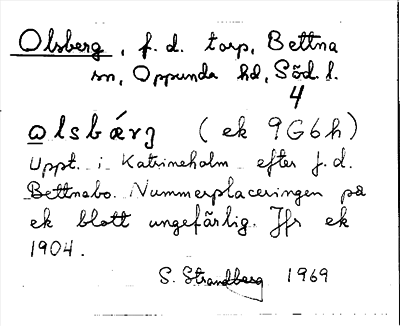 Olsberg, f. d. torp, Bettna
sn, Oppunda hd, Söd. l.
4
ɷlsbærj (ek 9G6h)
Uppt. i Katrineholm efter f.d.
Bettnabo. Nummerplaceringen på
ek blott ungefärlig. Jfr ek
1904.
S. Strandberg 1969